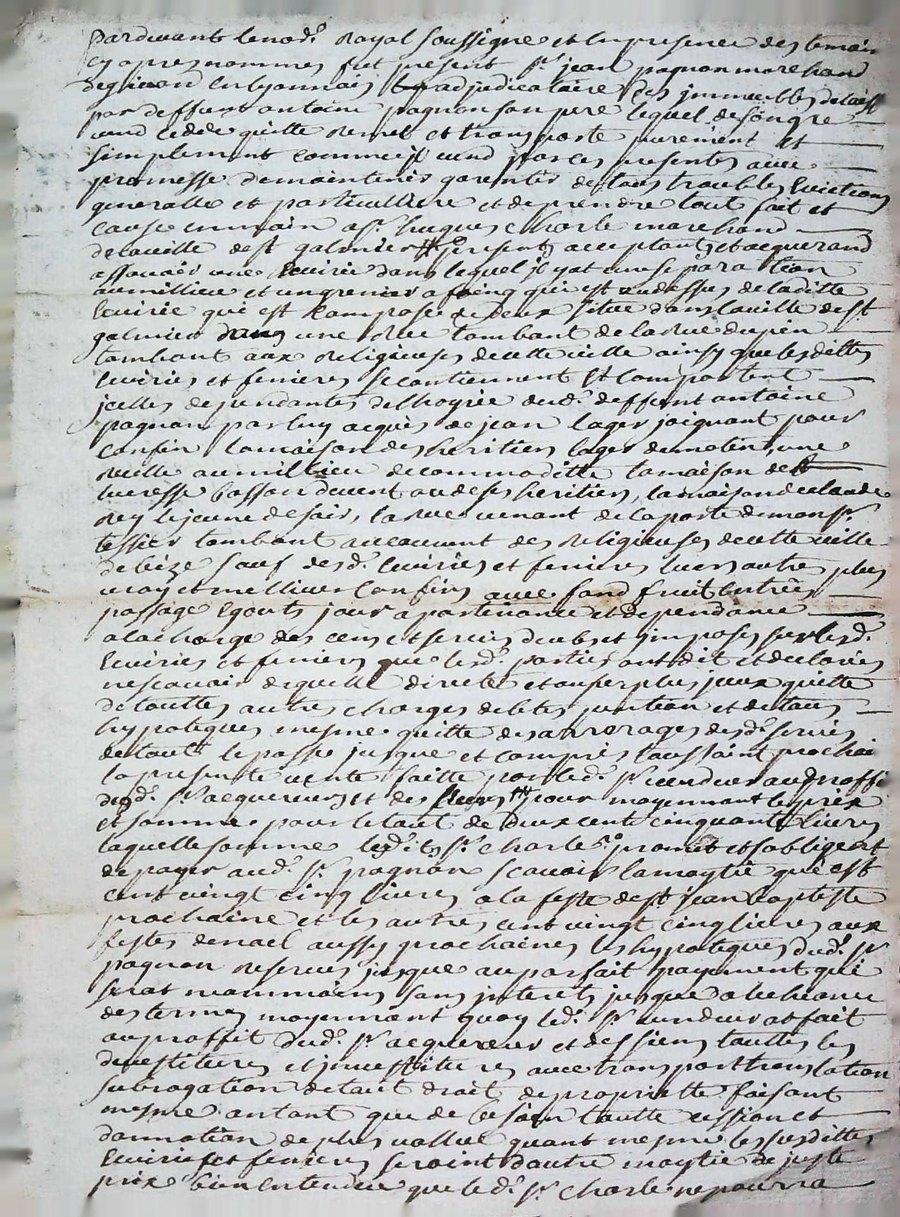 Pardevant le nore. Royal soussigne et en presence des temoin
cy apres nommes fut present Sr. jean pagnon marchand
de givord en lyonnais adjudicataire des immeubles delaisse
par deffunt antoine pagnon son pere lequel de son gre
vend cede quitte remet et transporte purement et
simplement comme il vend par ces presentes avec
promesse de maintenir garentir de tous troubles evictions
generalle et particulliere et de prendre tout fait et
cause en main a Sr. hugues charle marchand
de la ville de st galmier present acceptant et acquerand
assavoir une Ecuirie dans lequel il y at une separation
au millieu et un grenier a foing qui est au dessus de laditte
Ecuirie qui est compose de deux situe dans la ville de st.
galmier une Rue tombant de la rue du
tombant aux Religieuses de cette ville ainsy que lesdittes
Ecuiries et fenieres se contiennent et comportent
icelles dependantes de lhoyrie dudt. deffunt antoine
pagnon par luy acquis de jean lager joignant pour
confin la maison des heritiers lager une
ruelle au millieu de commoditte la maison de
lucresse basson devent ou de ses heritiers, la maison de claude
Rey le jeune de soir, la Rue venant de la porte de monsr.
tessier tombant au couvent des Religieuses de cette ville
de bize sauf desdt. Ecuiries et fenieres leurs autre plus
vray et meillieur confins avec fond fruit Entrees
passage Egouts jours apartenance et dependance
a la charge des cens et servis deubs et imposes sur lesd.
Ecuiries et fenieres que lesd. parties ont dit et declarer
ne scavoir de quelle directe et au surplus jceux quitte
de touttes autres charges debtes pention et de tous
hypoteques mesme quitte des arrerages desd. servis
de tout le passe jusque et compris toussaint prochai
la presente vente faitte par led. Sr. vendeur au proffi
dud. Sr. acquereur et des siens pour moyennant le prix
et somme pour le tout de deux cent cinquante livres
laquelle somme led. Sr. charle promet et soblige
de payer aud. Sr. pagnon scavoir la moytie qui est
cent vingt cinq livres a la feste de st jean baptiste
prochaine et les autres cent vingt cinq livres aux
festes de noel aussy prochaines les hypoteques dud. Sr.
pagnon reserves jusque au parfait payement qui
serat neammoins sans interets jusque a lecheance
des termes moyennant quoy led. Sr. vendeur at fait
au proffit dud. Sr. acquereur et des siens touttes les
devestitures et investitures avec transport translation
subrogation de tout droit de propriette faisant
mesme antant que de besoin toutte cession et
donnation de plus vallue quant mesme les susdittes
Ecuiries et fenieres seroint doutre moytie de juste
prix bien entendue que led. Sr. charle ne pourra